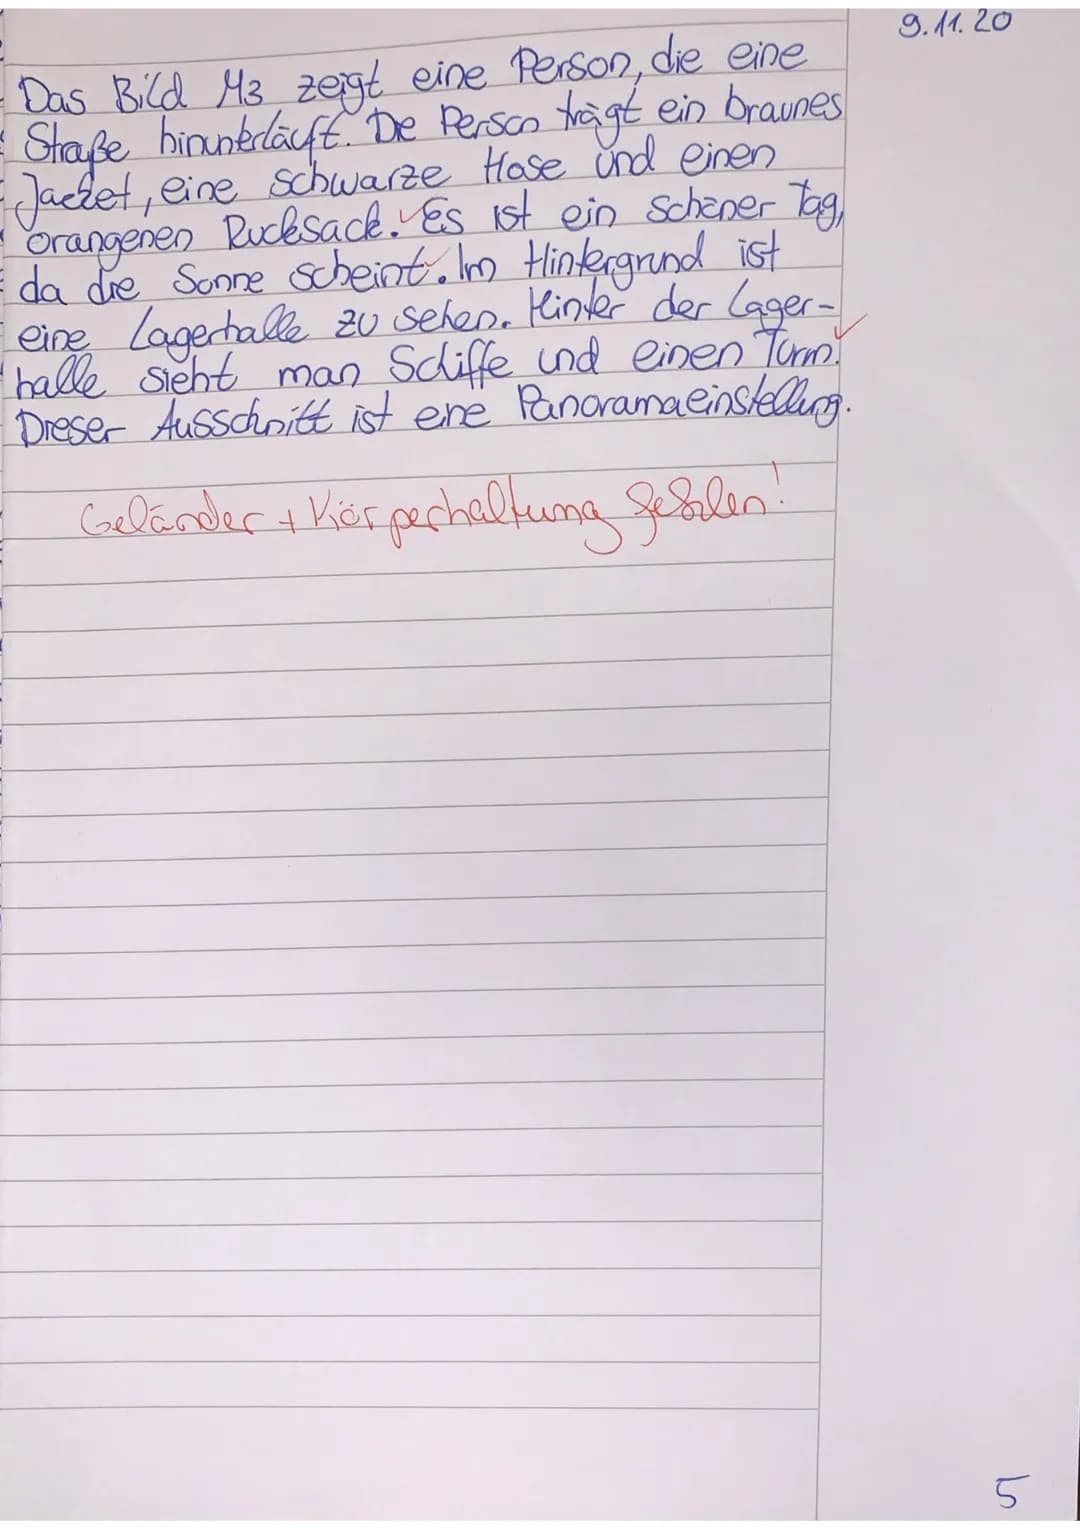 9.11.20
Das Bild M3 zeigt eine Person, die eine
Straße hinunterläuft. Die Person trägt ein braunes
Jacket, eine schwarze Hose und einen
orangenen Rucksack. Es ist ein schöner Tag,
da die Sonne scheint. Im Hintergrund ist
eine Lagerhalle zu sehen. Hinter der Lager-
halle sieht man Schiffe und einen Turm.
Dieser Ausschnitt ist eine Panoramaeinstellung.
Geländer + Körperhaltung fehlen!
5